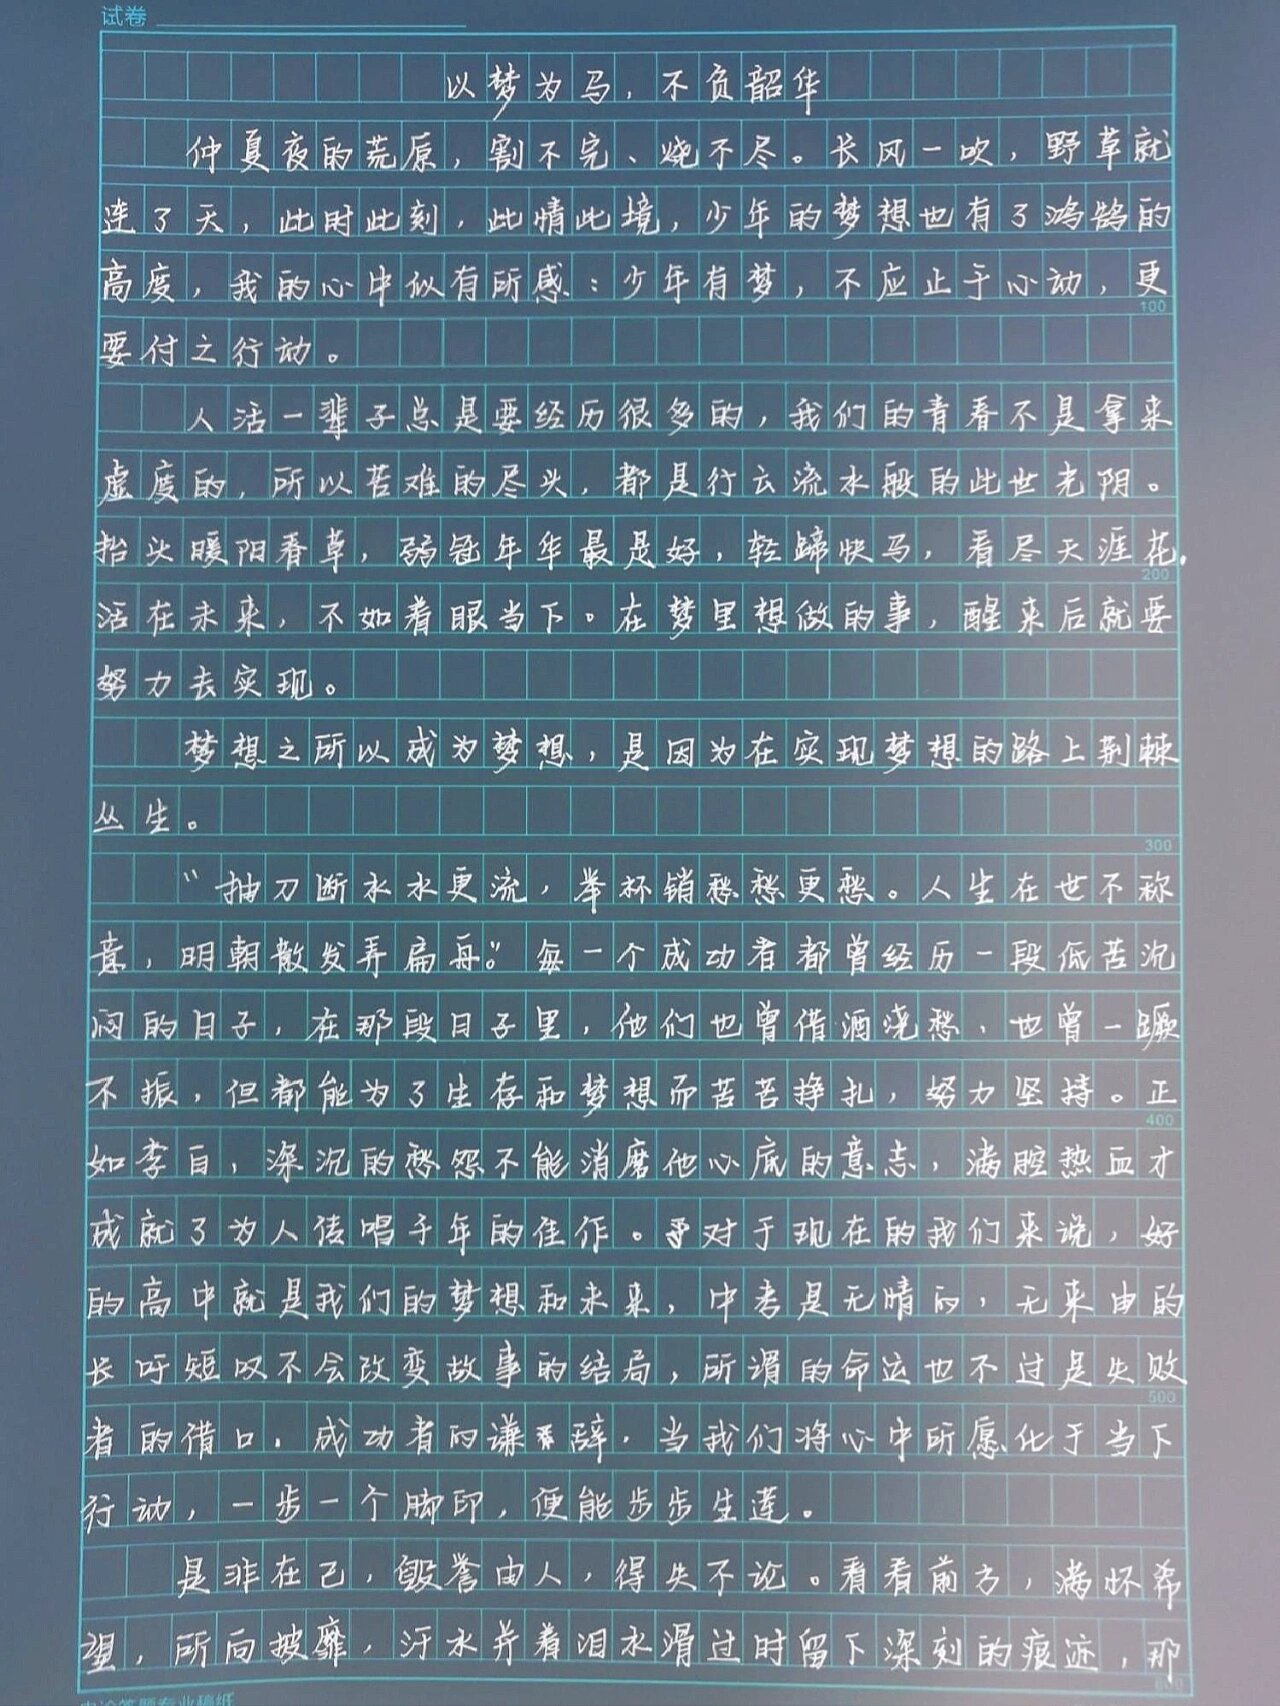 试卷
以梦为马，不负韶华
仲夏夜的荒原，割不完、烧不尽。长风一吹，野草就
连了天，此时此刻，此情此境，少年的梦想也有了鸿鹄的
高度，我的心中似有所感：少年有梦，不应止于心动，更
100
要付之行动。
人活一辈子总是要经历很多的，我们的青春不是拿来
虚度的，所以苦难的尽头，都是行云流水般的此世光阴。
抬头暖阳春草，弱冠年华最是好，轻蹄快马，看尽天涯花.
200
活在未来，不如着眼当下。在梦里想做的事，醒来后就要
努力去实现。
梦想之所以成为梦想，是因为在实现梦想的路上荆棘
丛生。
300
“抽刀断水水更流，举杯销愁愁更愁。人生在世不称
意，明朝散发弄扁舟。”每一个成功者都曾经历一段低苦沉
闷的日子，在那段日子里，他们也曾借酒浇愁，也曾一蹶
不振，但都能为了生存和梦想而苦苦挣扎，努力坚持。正
400
如李白，深沉的愁怨不能消磨他心底的意志，满腔热血才
成就了为人传唱千年的佳作。对于现在的我们来说，好
的高中就是我们的梦想和未来，中考是无情的，无来由的
长吁短叹不会改变故事的结局，所谓的命运也不过是失败
500
者的借口．成功者的谦辞．当我们将心中所愿化于当下
行动，一步一个脚印，便能步步生莲。
是非在己，毁誉由人，得失不论。看看前方，满怀希
望，所向披靡，汗水并着泪水滑过时留下深刻的痕迹，那
600